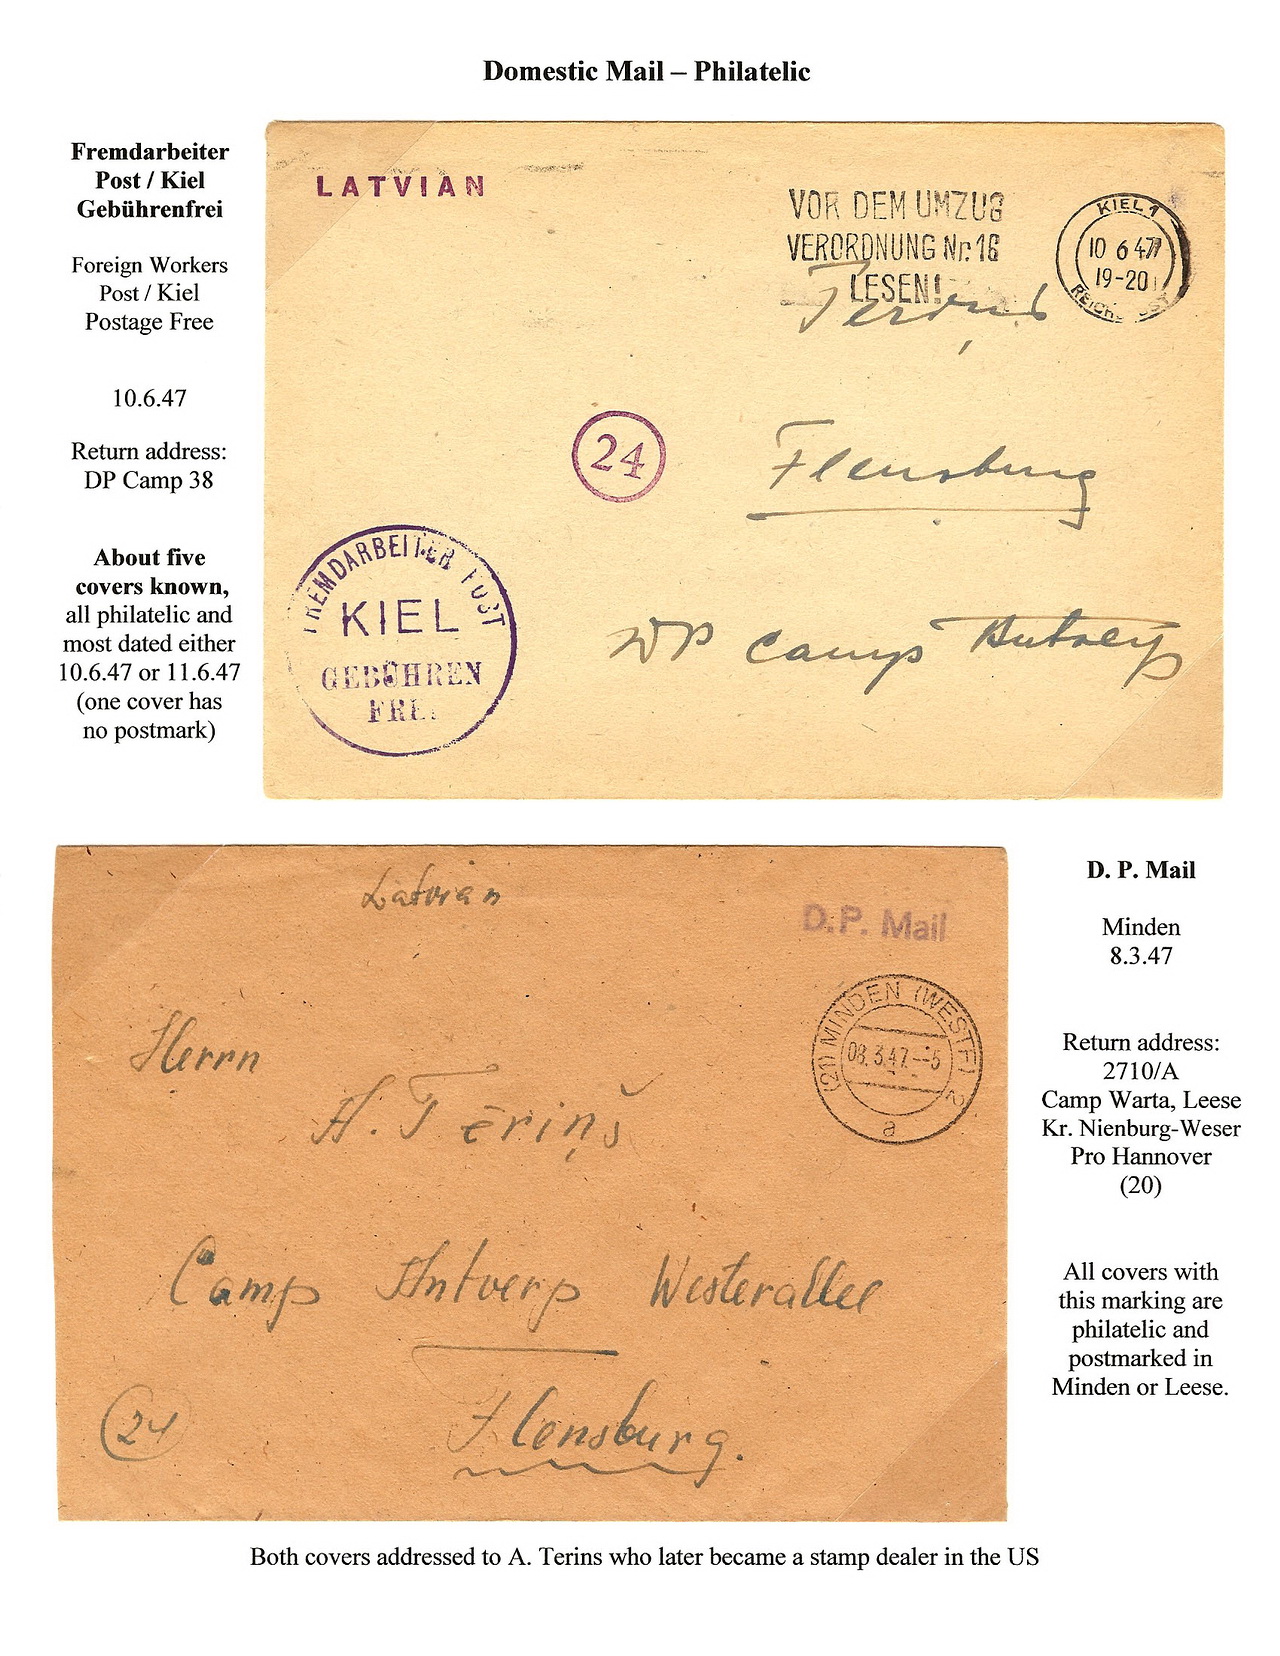 Domestic Mail – Philatelic
Fremdarbeiter
Post / Kiel
Gebührenfrei
Foreign Workers
Post / Kiel
Postage Free
10.6.47
Return address:
DP Camp 38
About five
covers known,
all philatelic and
most dated either
10.6.47 or 11.6.47
(one cover has
no postmark)
LATVIAN
VOR DEM UMZUG
VERORDNUNG Nr. 18
LESEN!
KIEL 1
10 6 47
19-20
REICHSPOST
Terins
24
Flensburg
DP Camp Antverp
FREMDARBEITER POST
KIEL
GEBÜHREN
FREI
Latvian
D.P. Mail
(21) MINDEN (WESTF) 2
08.3.47.--5
a
Herrn
A. Tēriņš
Camp Antverp Westerallee
24
Flensburg.
D. P. Mail
Minden
8.3.47
Return address:
2710/A
Camp Warta, Leese
Kr. Nienburg-Weser
Pro Hannover
(20)
All covers with
this marking are
philatelic and
postmarked in
Minden or Leese.
Both covers addressed to A. Terins who later became a stamp dealer in the US